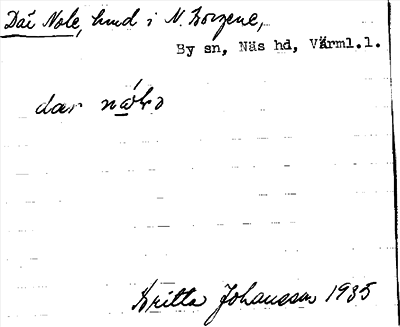 Där Nole, hmd i N. Borgene,
By sn, Näs hd, Värml.l.
dar
Britta Johansson 1935